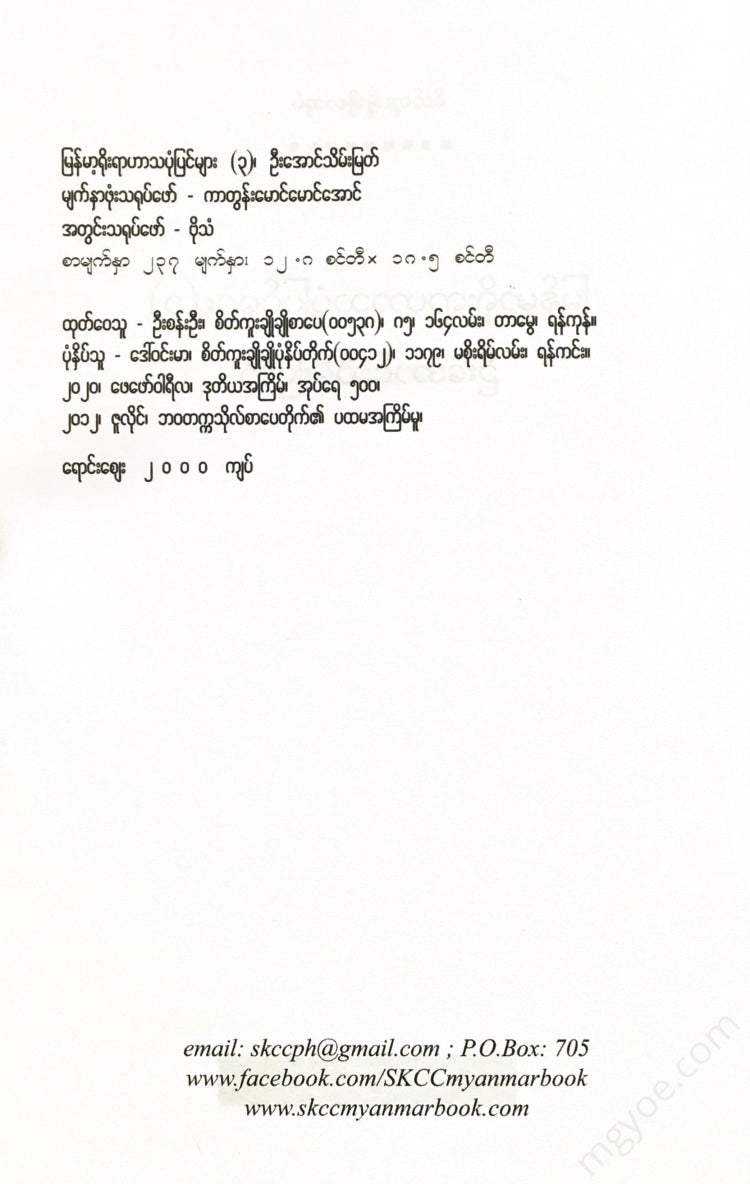 မြန်မာ့ရိုးရာဟာသပုံပြင်များ (၃)၊ ဦးအောင်သိမ်းမြတ်
မျက်နှာဖုံးသရုပ်ဖော် - ကာတွန်းမောင်မောင်အောင်
အတွင်းသရုပ်ဖော် - ဗိုသံ
စာမျက်နှာ ၂၃၇ မျက်နှာ၊ ၁၂.ဂ စင်တီ× ၁ဂ.၅ စင်တီ
ထုတ်ဝေသူ - ဦးစန်းဦး၊ စိတ်ကူးချိုချိုစာပေ(၀၀၅၃ဂ)၊ ဂ၅၊ ၁၆၄လမ်း၊ တာမွေ၊ ရန်ကုန်။
ပုံနှိပ်သူ - ဒေါ်ဝင်းမာ၊ စိတ်ကူးချိုချိုပုံနှိပ်တိုက်(၀၀၄၁၂)၊ ၁၁၇၉၊ မစိုးရိမ်လမ်း၊ ရန်ကင်း။
၂၀၂၀၊ ဖေဖော်ဝါရီလ၊ ဒုတိယအကြိမ်၊ အုပ်ရေ ၅၀၀၊
၂၀၁၂၊ ဇူလိုင်၊ ဘဝတက္ကသိုလ်စာပေတိုက်၏ ပထမအကြိမ်မူ၊
ရောင်းဈေး ၂ ၀ ၀ ၀ ကျပ်
email: skccph@gmail.com ; P.O.Box: 705
www.facebook.com/SKCCmyanmarbook
www.skccmyanmarbook.com
mgyoe.com